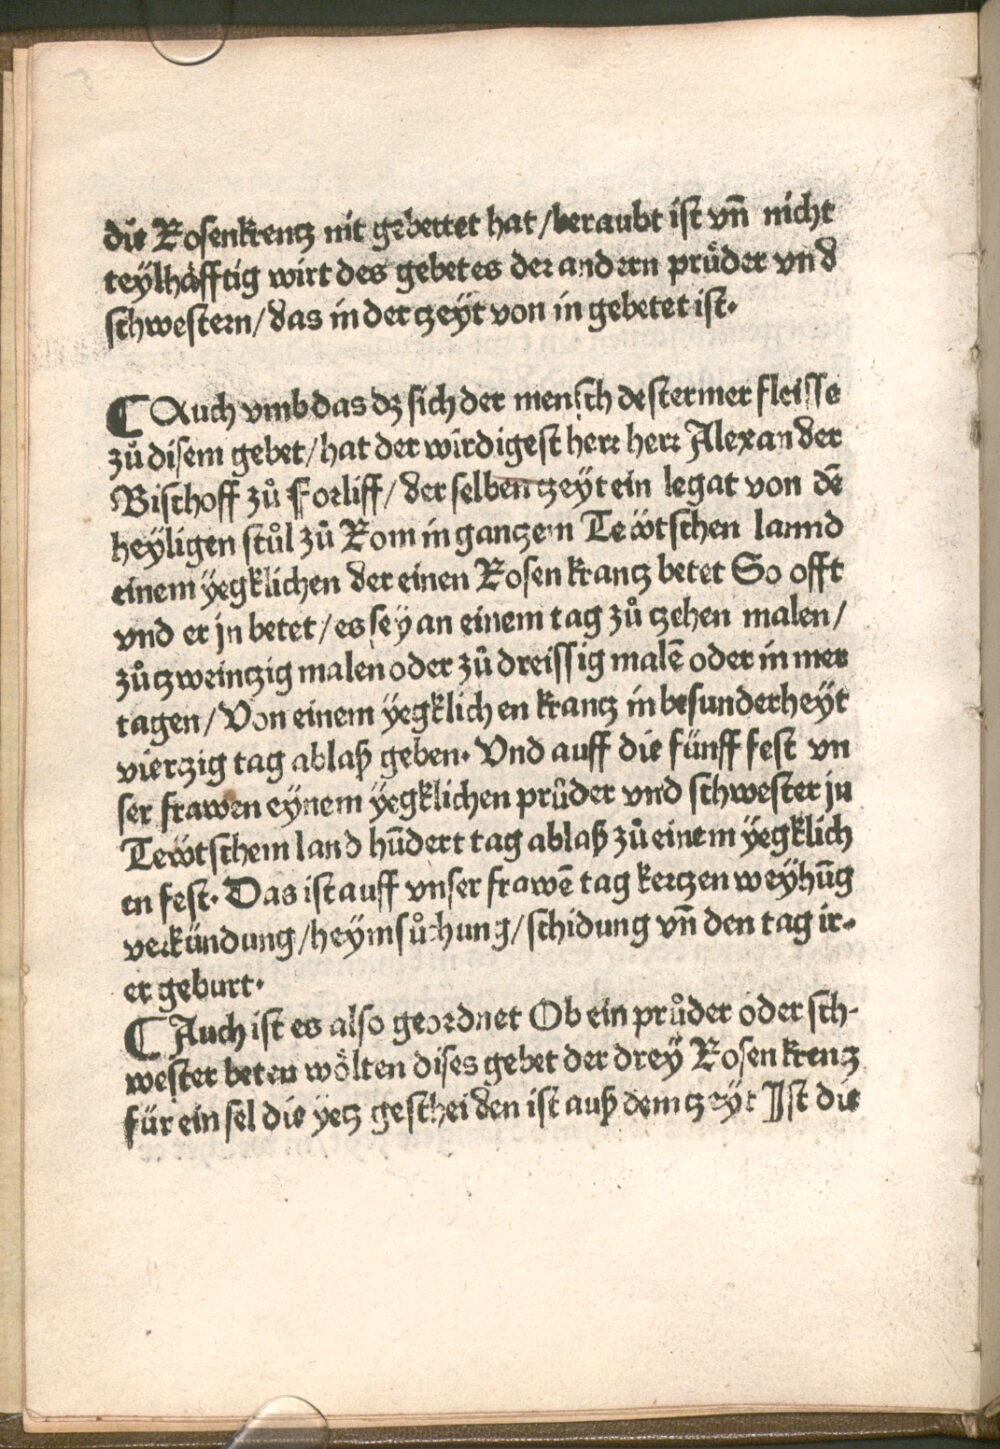 die Rosenkrentz nit gebettet hat/beraubt ist vn̄ nicht
teÿlhäfftig wirt des gebetes der andern průder vnd
schwestern/das in der tzeÿt von in gebetet ist.
¶ Auch vmb das dz sich der mensch destermer fleisse
zů disem gebet/hat der wirdigest herr herr Alexander
Bischoff zů Forliff/der selben tzeÿt ein legat von dē
heÿligen stůl zů Rom in gantzem Tewtschen lannd
einem yegklichen der einen Rosenkrantz betet So offt
vnd er jn betet/es seÿ an einem tag zů tzehen malen/
zů tzweintzig malen oder zů dreissig malē oder in mer
tagen/Von einem ÿegklichen krantz in besunderheÿt
viertzig tag ablaß geben. Vnd auff die fünff fest vn
ser frawen eÿnem ÿegklichen průder vnd schwester ju
Tewtschem land hūdert tag ablaß zů einem ÿegklich
en fest. Das ist auff vnser frawē tag kertzen weÿhūg
verkündung/heÿmsůchung/schidung vn̄ den tag ir-
er geburt.
¶ Auch ist es also geordnet Ob ein průder oder sch-
wester beten wölten dises gebet der dreÿ Rosenkrentz
für ein sel die yetz gescheiden ist auß dem tzeÿt Ist die